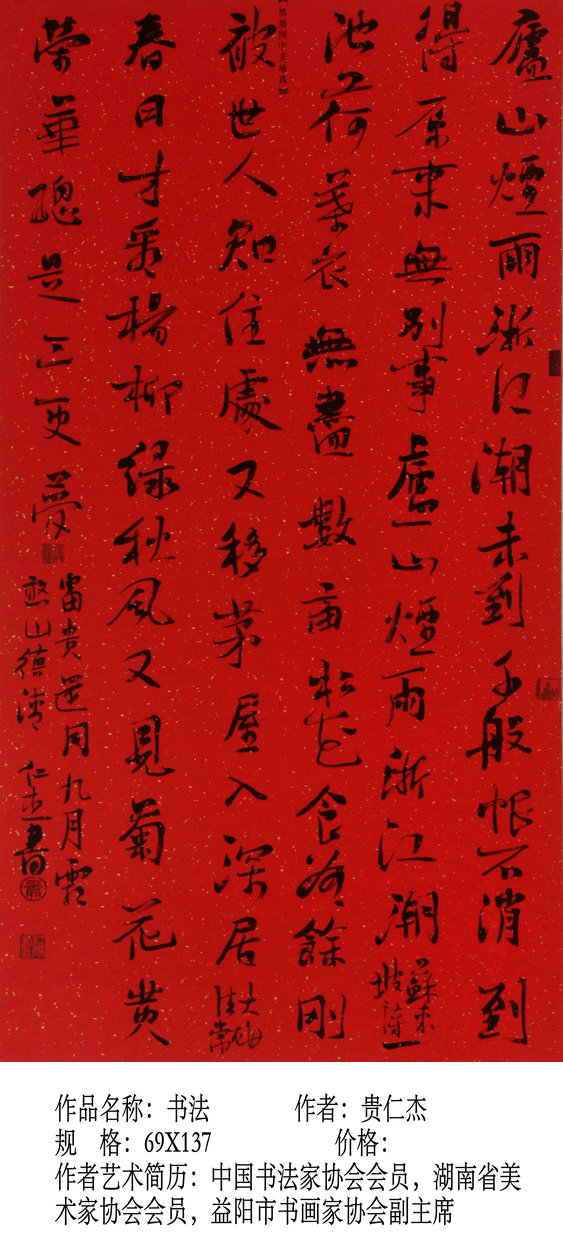 廬山煙雨浙江潮未到千般恨不消到
得原来無別事廬山煙雨浙江潮
蘇東坡詩一
池荷葉衣無盡數亩松花食有餘剛
被世人知住處又移茅屋入深居
大梅法常
春日才看楊柳绿秋風又見菊花黄
榮華總是三更夢
富貴還同九月霜
憨山德清 仁杰書
作品名称：书法 作者：贵仁杰
规 格：69X137 价格：
作者艺术简历：中国书法家协会会员，湖南省美
术家协会会员，益阳市书画家协会副主席